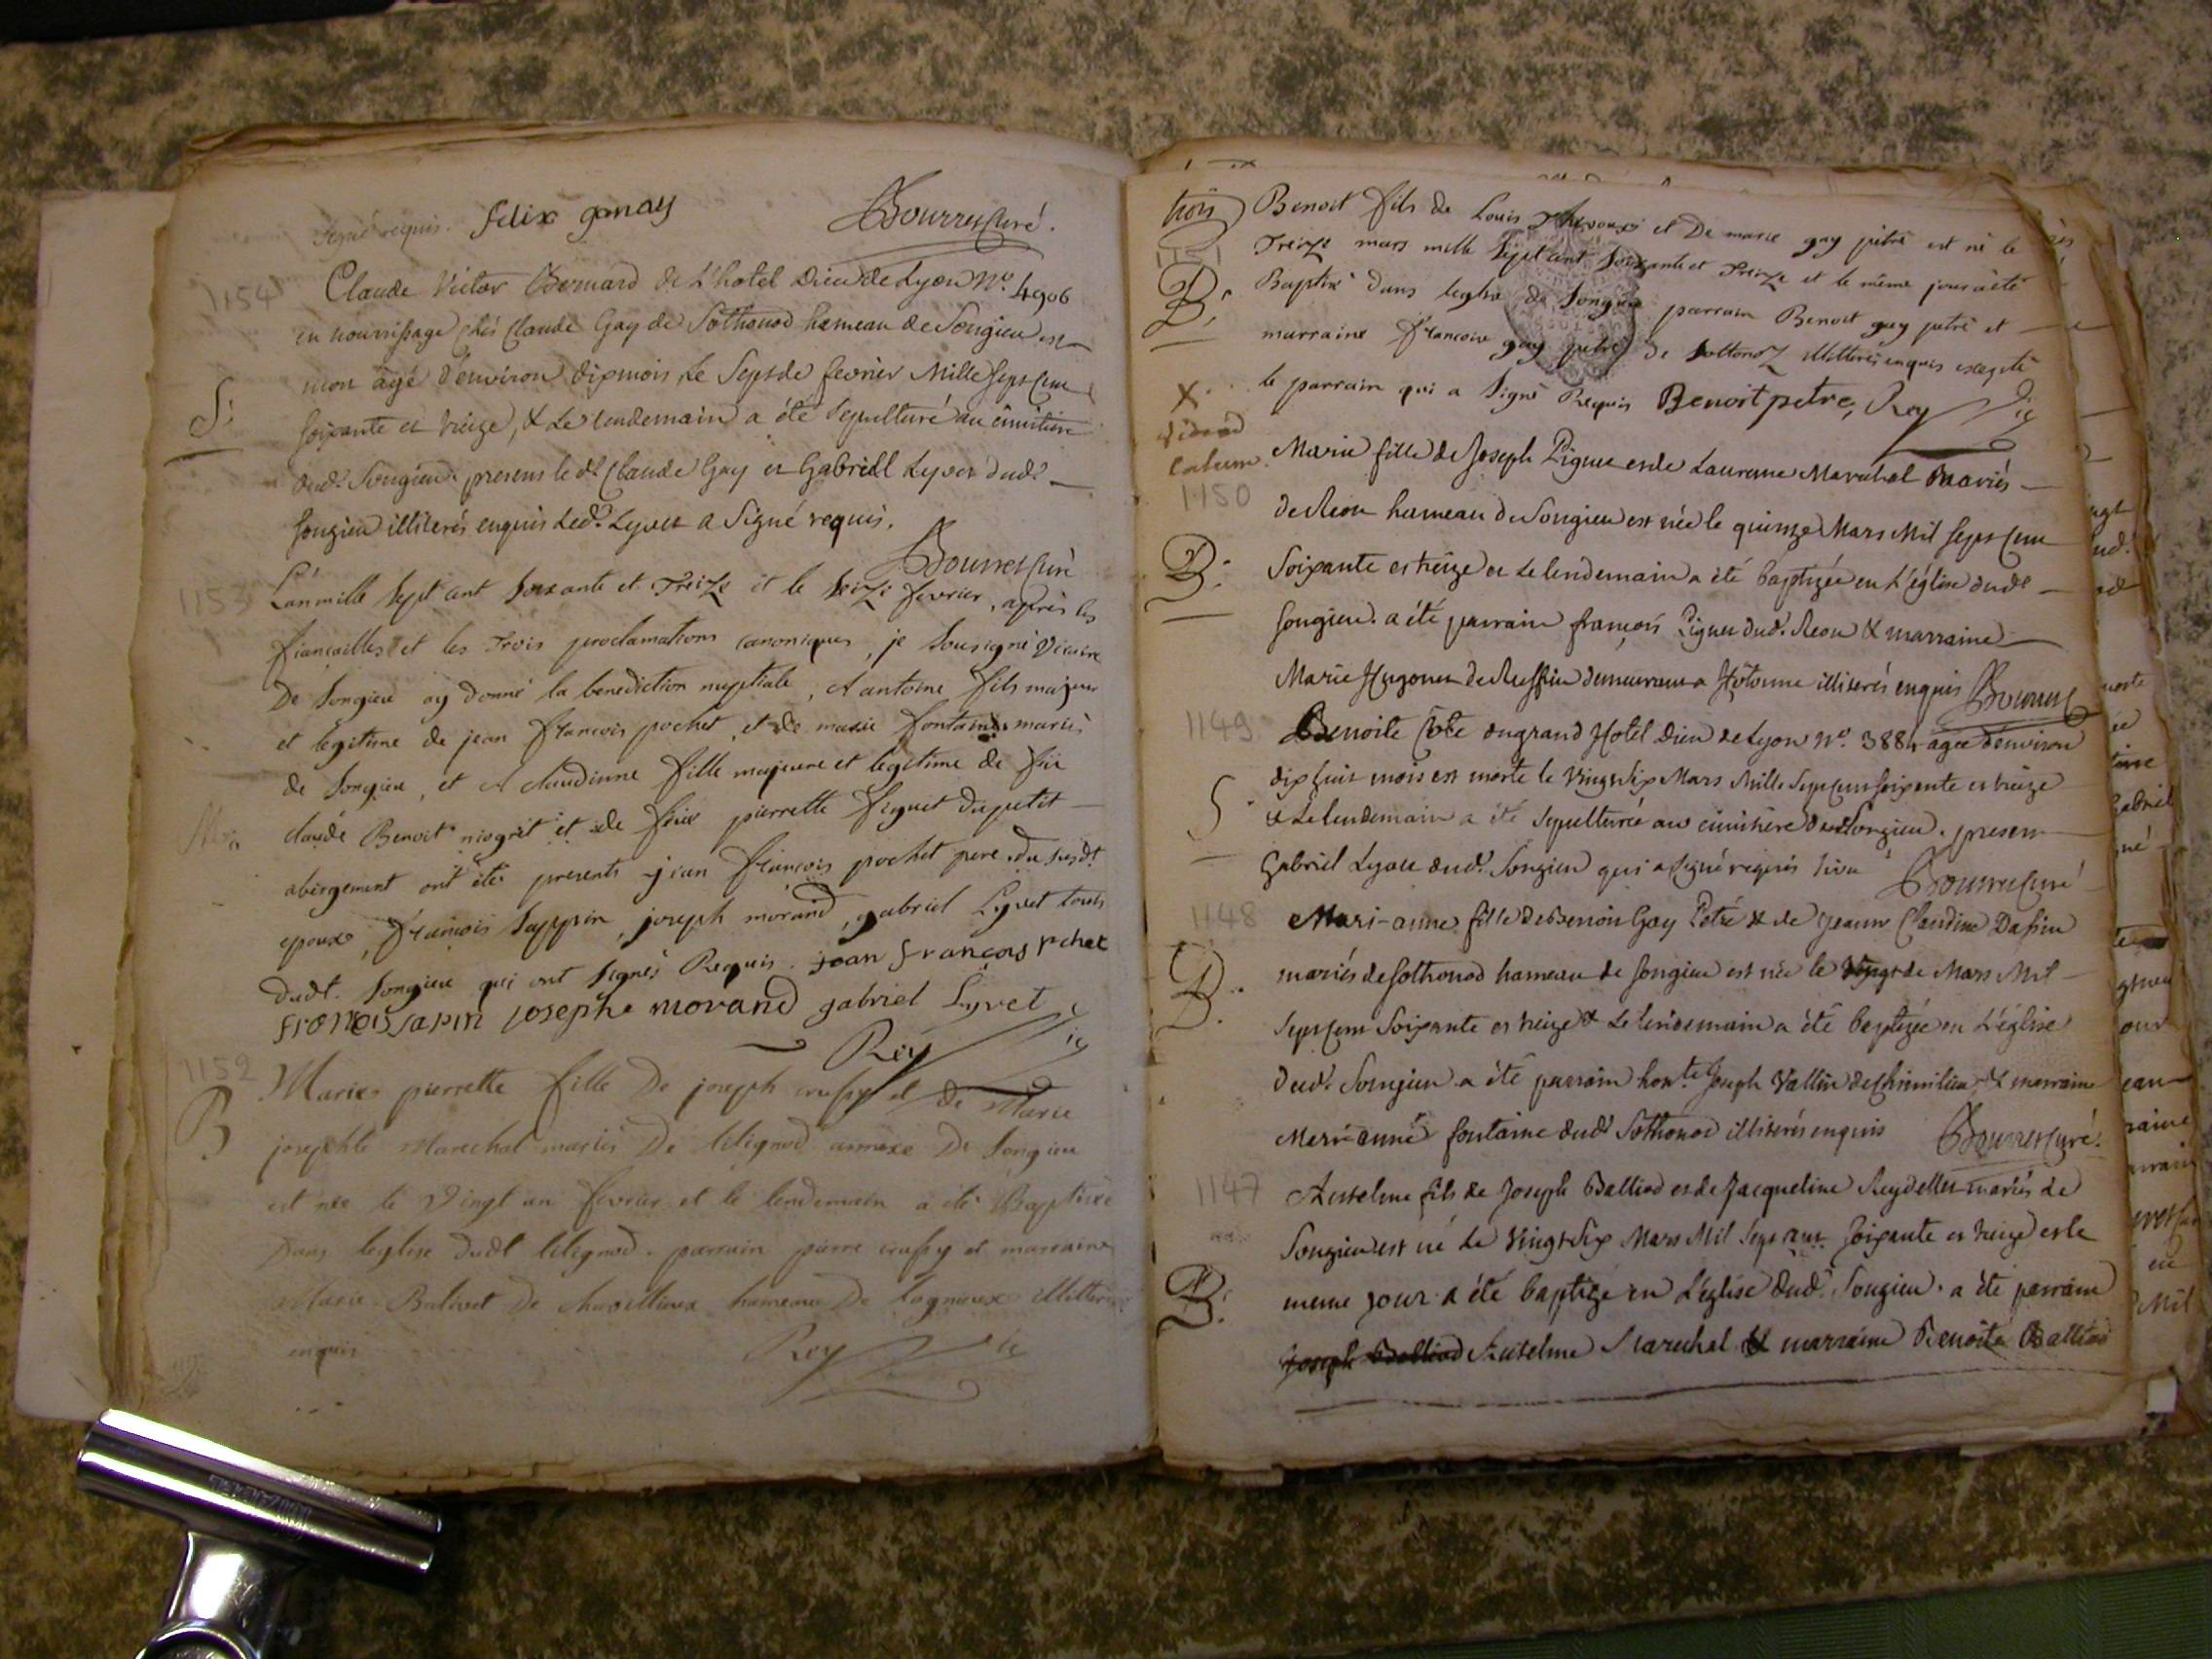 signé requis. felix ganay Bourret Curé.
1154
Claude Victor Bernard de L'hotel Dieu de Lyon N°. 4906
en nourrissage chés Claude Gay de Sothonod hameau de Songieu est
mort agé d'environ dix mois, le Sept de fevrier Mille sept Cent
S.
soixante et treize, & Le lendemain a été sepulturé au cimitiere
dud. Songieu. presens le dt Claude Gay et Gabriell Lyvet dud.
songieu illiterés enquis led. Lyvet a Signé requis.
Bourret Curé
1153
L'an mille sept cent soixante et treize et le seize fevrier, après les
fiancailles et les trois proclamations canoniques, je sousigné vicaire
De songieu ay donné la benediction nuptiale, a antoine fils majeur
et legitime de jean francois pochet, et de marie fontaine mariés
de songieu, et a claudinne fille majeure et legitime de feu
claude Benoit niogret et de feüe pierrette figuet du petit
abergement ont étés presents jean francois pochet pere du susdt.
epoux, francois sappin, joseph morand, gabriel Lyvet touts
dudt. songieu qui ont signés Requis. jean francois pchet
francois sapin josephe morand gabriel Lyvet
Rey vic
1152
B
Marie pierrette fille De joseph crussy et de Marie
josephte Marechal mariés De lilignod annexe De Songieu
est née le vingt un fevrier et le lendemain a été Baptisée
Dans leglise dudt lilignod. parrain pierre crussy et marraine
Marie Balivet De chavillieux hameau De lognieux illitterés
enquis Rey vic
trois
Benoit fils de Louis et De marie gay pitre est né le
1151
treize mars mille sept cent soixante et treize et le même jour a été
B.
Baptisé dans leglise de songieu parrain Benoit gay petre et
marraine francoise gay petre de sottonoz illitterés enquis exepté
X.
le parrain qui a signé Requis Benoit petre, Rey vic
Marie fille de Joseph Pignier et de Laurence Marechal Mariés
1150
de Reon hameau de Songieu est née le quinze Mars Mil sept Cent
B.
Soixante et treize et Le lendemain a été baptizée en L'église dudt
songieu. a été parrain françois Pignier dud. Reon & marraine
Marie Hugonet de Ruffieu demeurant a Hôtonne illiterés enquis Bourret C
1149
Benoite Côte du grand Hotel Dieu de Lyon N°. 3884 agée d'environ
dix huit mois est morte le vingt Six Mars Mille Sept Cent soixante et treize
S.
& Le lendemain a été Sepulturée au cimitière dud Songieu. presens
Gabriel Lyvet dud. Songieu qui a signé requis Bourret Curé
1148
Mari-anne fille de Benoit Gay Petre & de Jeanne Claudine Dassin
B.
mariés de sothonod hameau de songieu est née le vingt de Mars Mil
Sept Cent Soixante et treize & Le lendemain a été baptizée en L'église
dud. Songieu a été parrain hon.te Joseph Vallin de & marraine
Marie-anne fontaine dud Sothonod illiterés enquis Bourret Curé.
1147
Anselme fils de Joseph Balliod et de Jacqueline Reydellet mariés de
Songieu est né Le Vingt Six Mars Mil Sept cent soixante et treize et le
B.
meme jour a été baptizé en L'église dud. Songieu. a été parrain
Joseph Balliod Anselme Marechal & marraine Benoite Balliod